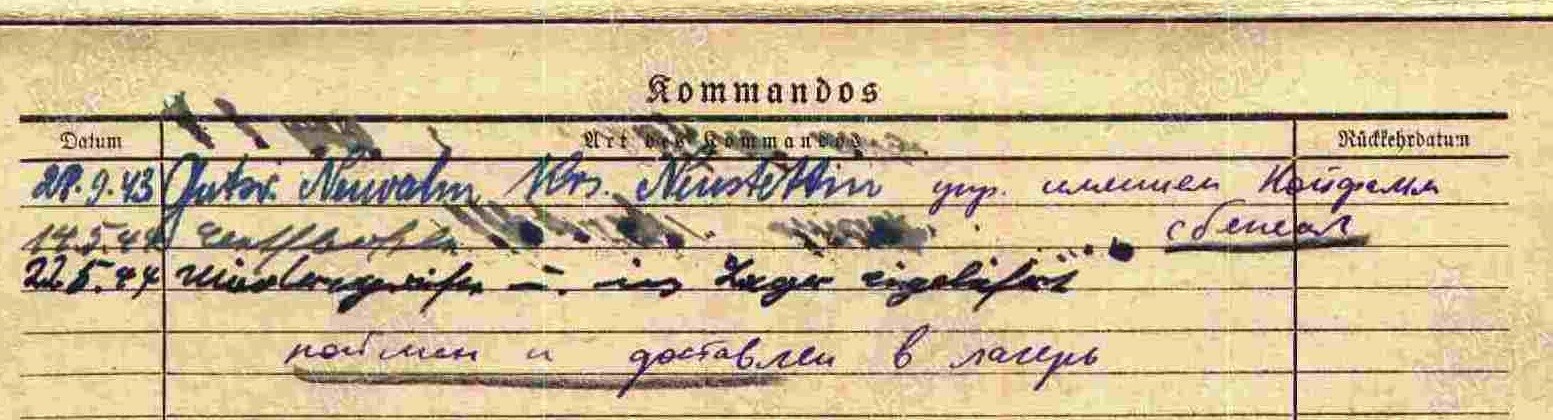 Kommandos
Datum Art des Kommandos Rückkehrdatum
28.9.43 Gutsv. Neuvalm Krs. Neustettin упр. имением
14.5.44 сбежал
22.5.44 u. ins Lager eigeliefert
пойман и доставлен в лагерь